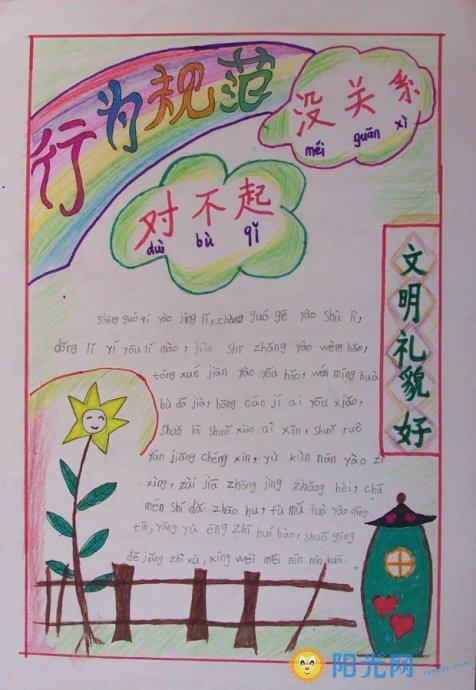 行为规范
没关系
méi guān xì
对不起
duì bù qǐ
文明礼貌好
shēng guó qí yào jìng lǐ, chàng guó gē yào shù lì,
dǒng lǐ yí yǒu lǐ mào, jiàn shī zhǎng yào wèn hǎo,
tóng xué jiān yào yǒu hǎo, wén míng huà
bù dǎ jià, bāng cán jí ai yòu xiǎo,
xīn, shuō
yán jiǎng chéng xìn, yù kùn nán yào zì
xìng, zài jiā zhōng jìng zhǎng bèi, chū
mén shí dǎ zhāo hu, fù mǔ huà yào
tīn, yǎng yù ēng zhī huí bào,
dé jiǎng zhì xù, xíng wéi měi rén rén kuā.
阳光网